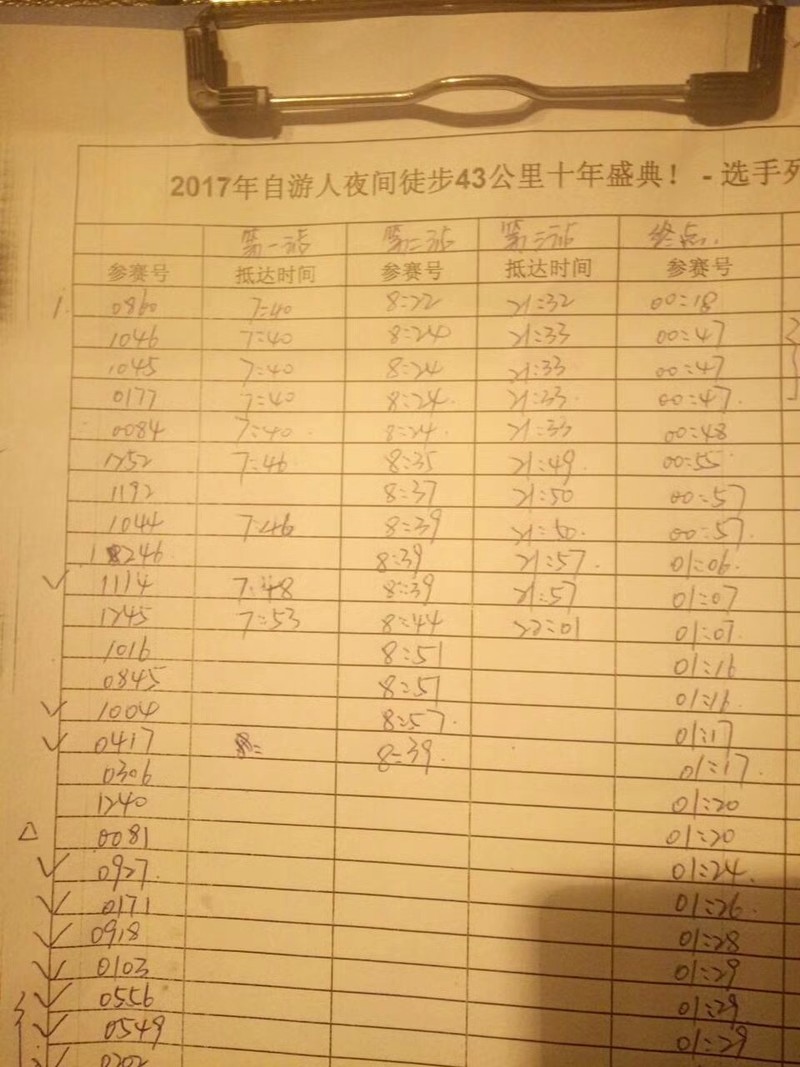 2017年自游人夜间徒步43公里十年盛典！ - 选手列
第一站 第二站 第三站 终点.
参赛号 抵达时间 参赛号 抵达时间 参赛号
1. 0860 7:40 8:22 21:32 00:18
1046 7:40 8:24 21:33 00:47
1045 7:40 8:24 21:33 00:47
0177 7:40 8:24. 21:33. 00:47.
0084 7:40 8:24. 21:33 00:48
1252 7:46 8:35 21:49 00:55
1192 8:37 21:50 00:57
1044 7:46 8:39 21:50. 00:57.
246 8:39 21:57. 01:06.
✓ 1114 7:48 8:39 21:57 01:07
1245 7:53 8:44 22:01 01:07.
1016 8:51 01:16
0845 8:51 01:16
✓ 1004 8:57. 01:17
✓ 0417 8:39. 01:17.
0306 01:20
1240 01:20
△ 0081 01:24.
✓ 0927. 01:26.
✓ 0171 01:28
✓ 0918 01:29
✓ 0103 01:29
✓ 0556 01:29
✓ 0549
0202